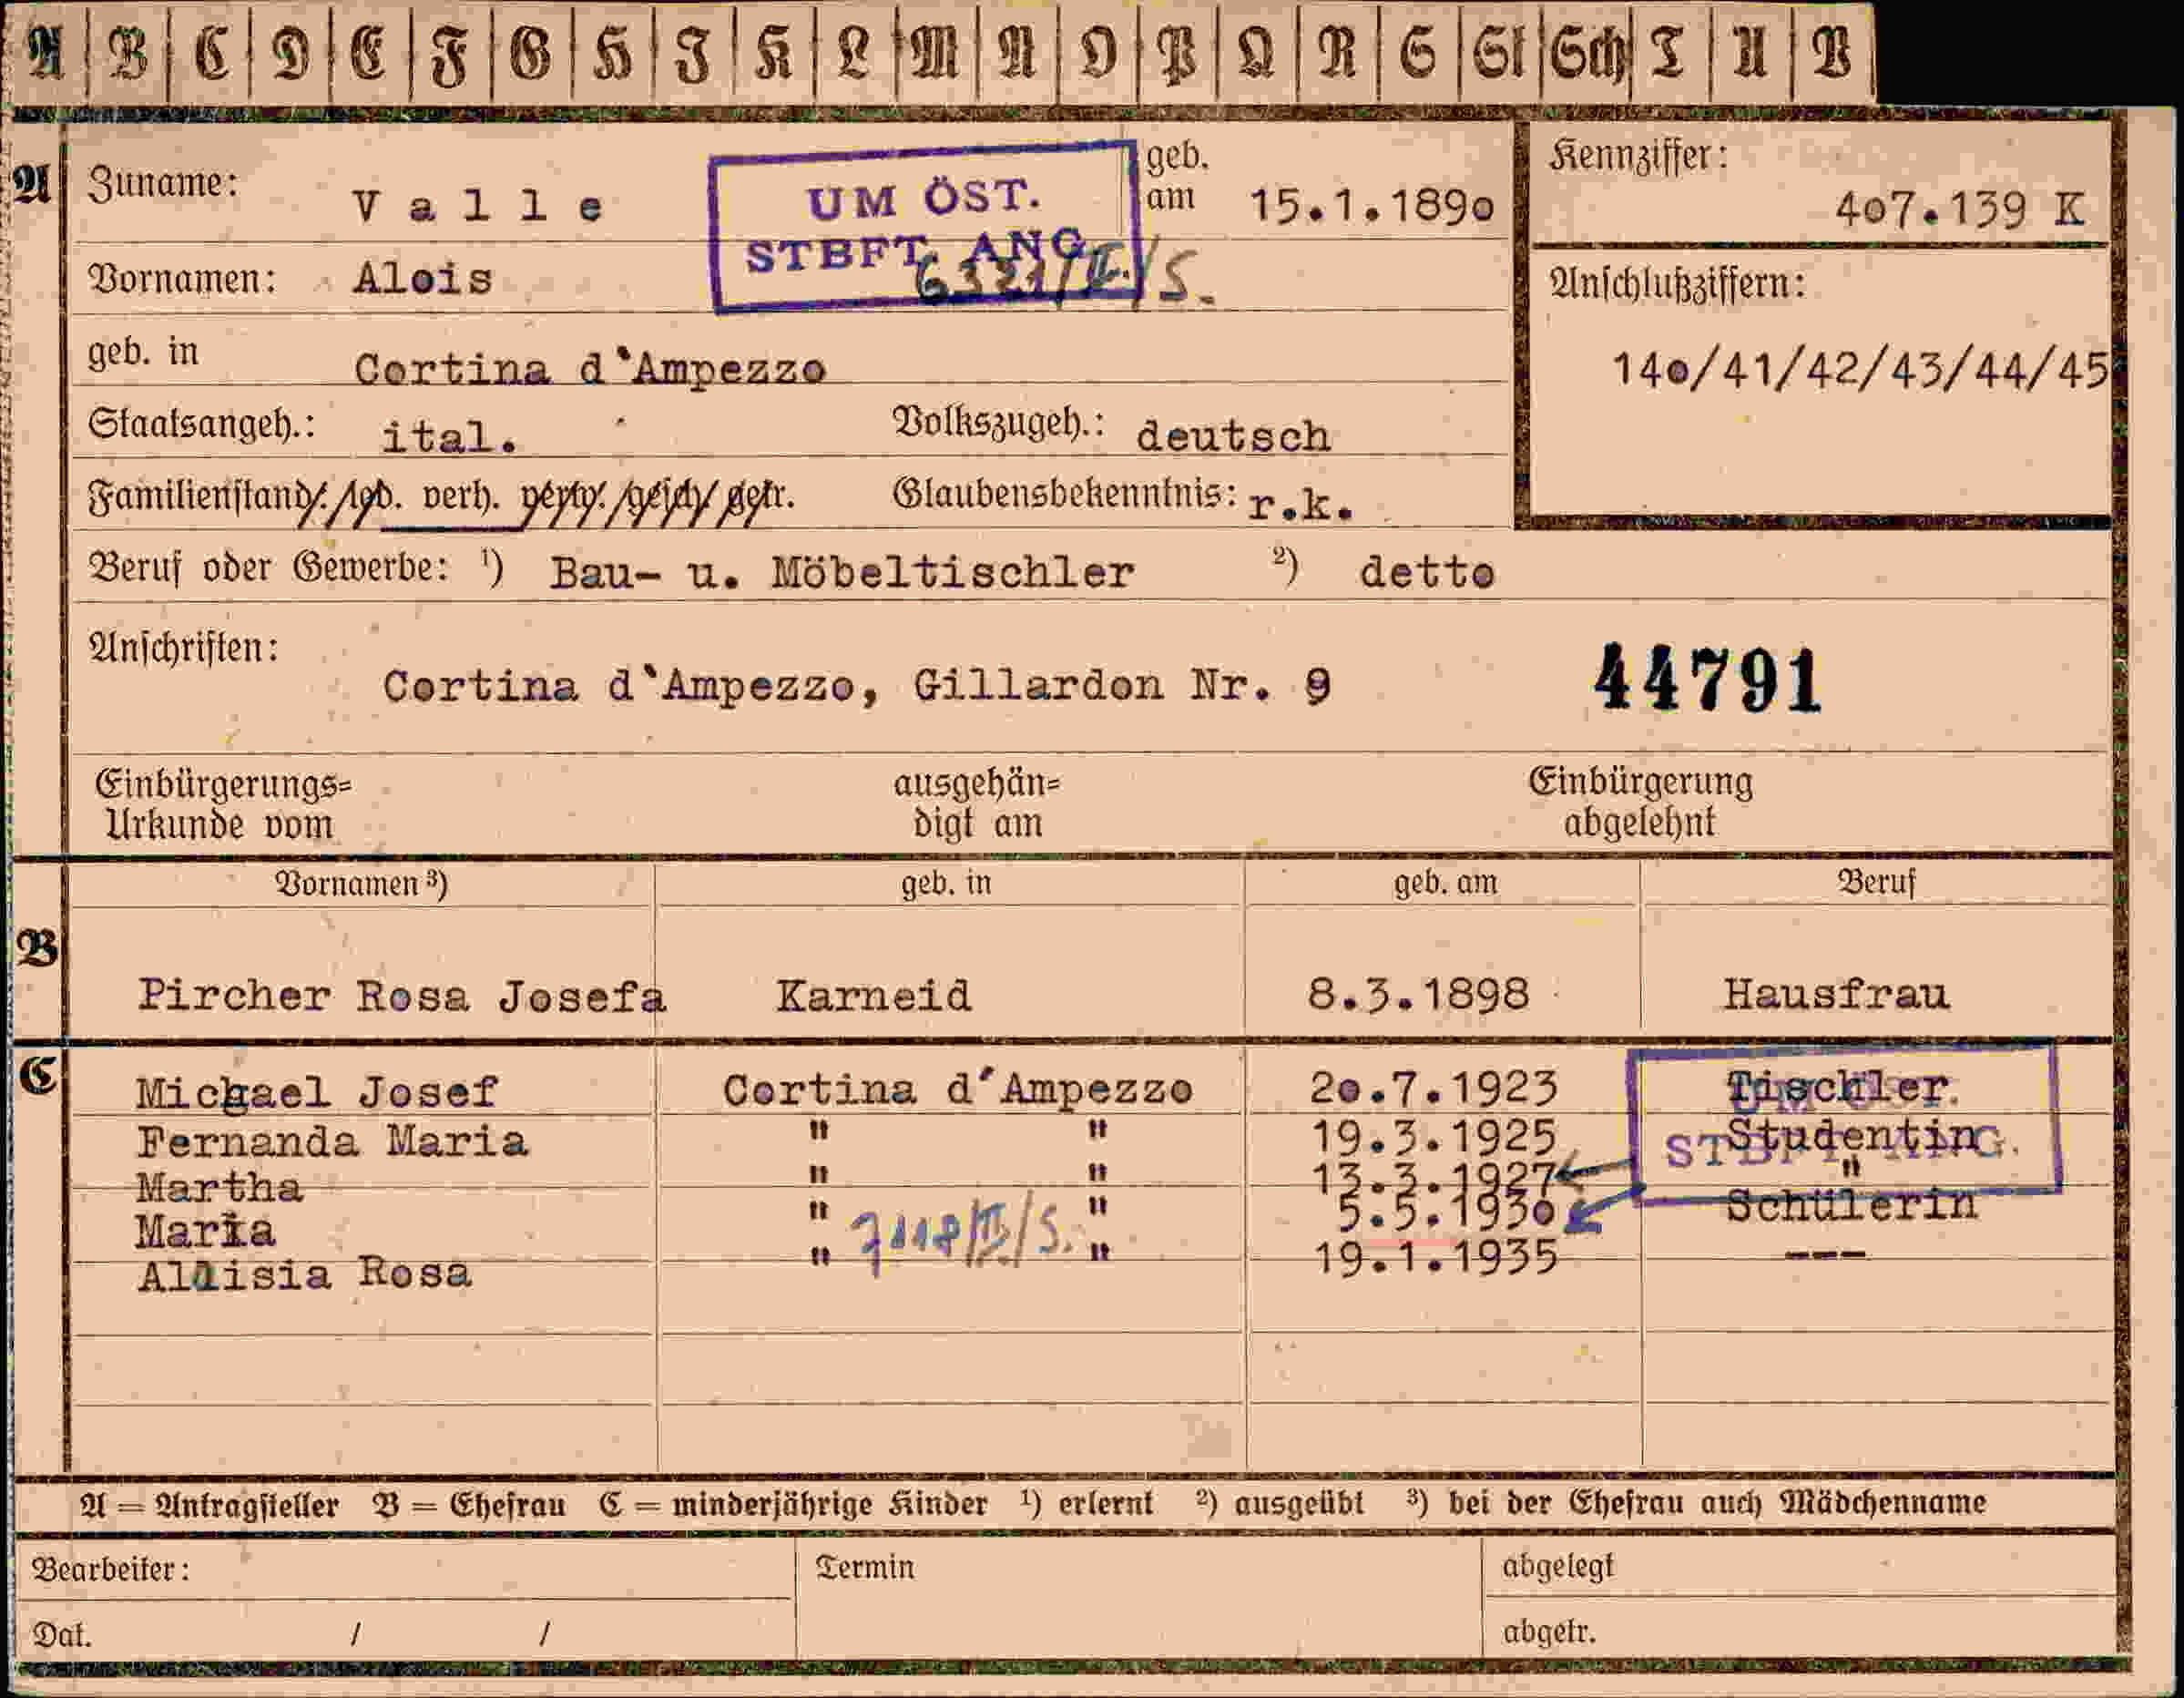 A B C D E F G H I K L M N O P Q R S St Sch T U V
A Zuname: Valle
UM ÖST.
STBFT. ANG.
6321/II./S.
geb. am 15.1.1890
Kennziffer:
407.139 K
Vornamen: Alois
Anschlußziffern:
140/41/42/43/44/45
geb. in Cortina d'Ampezzo
Staatsangeh.: ital. Volkszugeh.: deutsch
Familienstand: led. verh. verw. gesch. getr. Glaubensbekenntnis: r.k.
Beruf oder Gewerbe: ¹) Bau- u. Möbeltischler ²) detto
Anschriften:
Cortina d'Ampezzo, Gillardon Nr. 9 44791
Einbürgerungs= ausgehän= Einbürgerung
Urkunde vom digt am abgelehnt
Vornamen ³) geb. in geb. am Beruf
B Pircher Rosa Josefa Karneid 8.3.1898 Hausfrau
C Michael Josef Cortina d'Ampezzo 20.7.1923 Tischler
Fernanda Maria " " 19.3.1925 Studentin
STBFT. ANG.
Martha " " 13.3.1927 "
Maria " " 5.5.1930 Schülerin
Aloisia Rosa " " 19.1.1935 ---
A = Antragsteller B = Ehefrau C = minderjährige Kinder ¹) erlernt ²) ausgeübt ³) bei der Ehefrau auch Mädchenname
Bearbeiter: Termin abgelegt
Dat. / / abgetr.